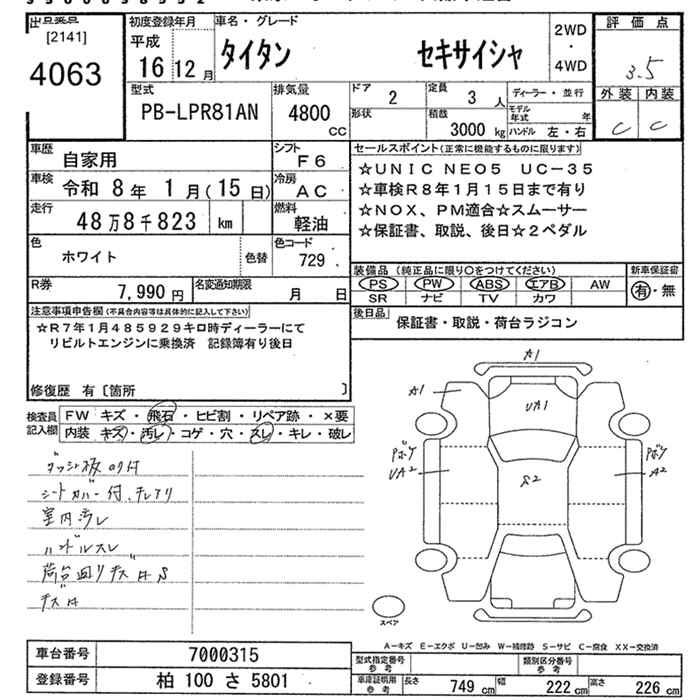 出品業店
[2141]
4063
初度登録年月
平成
16 12 月
車名・グレード
タイタン セキサイシャ
2WD
・
4WD
評価点
3.5
外装 内装
C C
型式
PB-LPR81AN
排気量
4800 cc
ドア 2
定員 3 人
形状
積載 3000 kg
ディーラー・並行
モデル年式 年
ハンドル 左・右
車歴 自家用
シフト F6
車検 令和 8 年 1 月 (15 日)
冷房 AC
走行 48万8千823 km
燃料 軽油
色 ホワイト 色替
色コード 729
R券 7,990 円
名変通知期限 月 日
セールスポイント(正常に機能するものに限ります)
☆UNIC NEO5 UC-35
☆車検R8年1月15日まで有り
☆NOX、PM適合☆スムーサー
☆保証書、取説、後日☆2ペダル
装備品 (純正品に限り○をつけてください)
PS PW ABS エアB AW
SR ナビ TV カワ
新車保証書
有・無
後日品 保証書・取説・荷台ラジコン
注意事項申告欄(不具合内容等は具体的に記入して下さい)
☆R7年1月485929キロ時ディーラーにて
リビルトエンジンに乗換済 記録簿有り後日
修復歴 有〔箇所 〕
検査員記入欄
FW キズ・飛石・ヒビ割・リペア跡・×要
内装 キズ・汚レ・コゲ・穴・スレ・キレ・破レ
ダッシュ板のり付
シートカバー付、チレアリ
室内汚レ
ハンドルスレ
荷台回りキズ
A1
A1
UA1
ボディ
UA2
S2
ボディ
A2
スペア
A-キズ E-エクボ U-凹み W-補修跡 S-サビ C-腐食 XX-交換済
車台番号 7000315
登録番号 柏 100 さ 5801
型式指定番号 参考
類別区分番号 参考
車庫証明用 参考
長さ 749 cm 幅 222 cm 高さ 226 cm